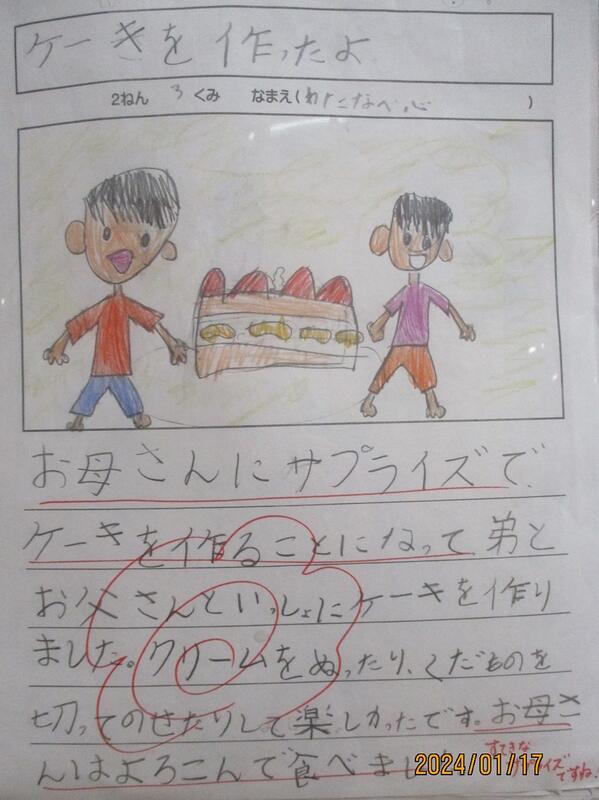 ケーきを作ったよ
2ねん 3 くみ なまえ(わたなべ 心)
お母さんにサプライズで、
ケーきを作ることになって、弟と
お父さんといっしょにケーキを作り
ました。クリームをぬったり、くだものを
切ってのせたりして楽しかったです。お母さ
んはよろこんで食べまし
すてきな
サプライズ
ですね!
2024/01/17